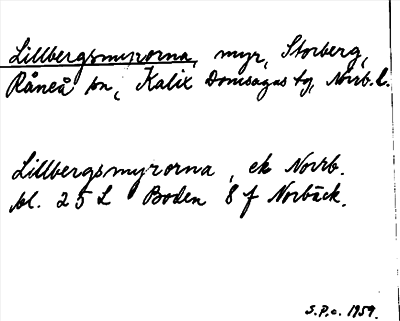 Lillbergsmyrorna, myr, Storberg,
Råneå sn, Kalix Domsagas tg, Norrb. l.
Lillbergsmyrorna, ek Norrb.
bl. 25 L Boden 8 f Norbäck.
S.P.c. 1959.